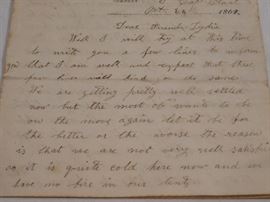 Oct. 26th 1862.
Dear friend Lydia
Well I will try at this time
to write you a few lines to inform
you that I am well and expect that these
few lines will find you the same
We are getting pretty well settled
now but the most of wants to be
on the move again let it be for
the better or the worse the reason
is that we are not very well satisfied
as it is quite cold here now and we
have no fire in our tents